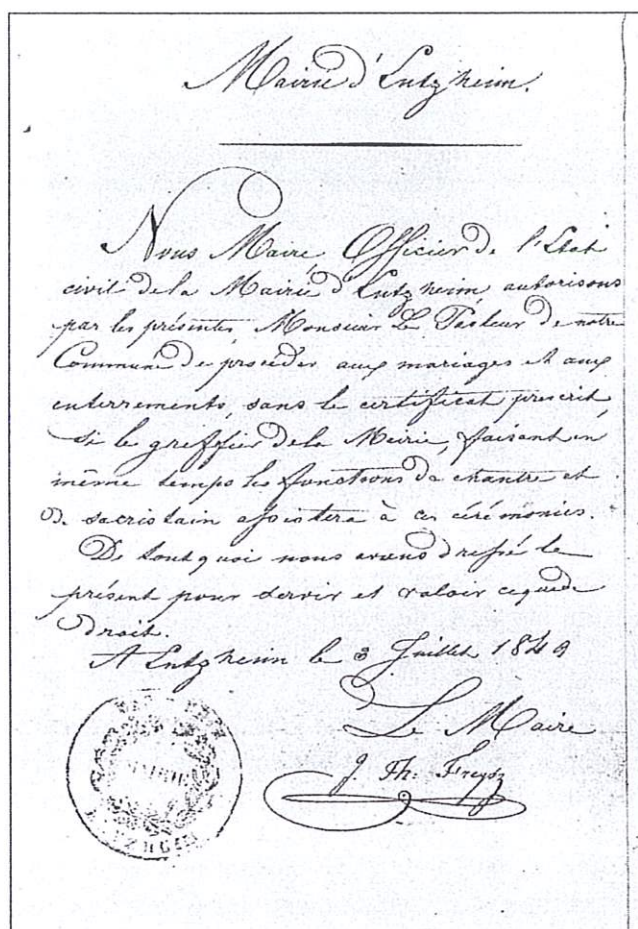 Mairie d'Lutzheim.
Nous Maire, Officier de l'Etat
civil de la Mairie d'Lutzheim, autorisons
par les présentes, Monsieur Le Pasteur de notre
Commune de procéder aux mariages et aux
enterrements, sans le certificat prescrit
si le greffier de la Mairie, faisant en
même temps les fonctions de chantre et
de sacristain assistera à ces cérémonies.
De tout quoi nous avons dressé le
présent pour servir et valoir ce que de
droit.
A Lutzheim le 3 Juillet 1849
Le Maire
J. Th. Freysz
MAIRIE